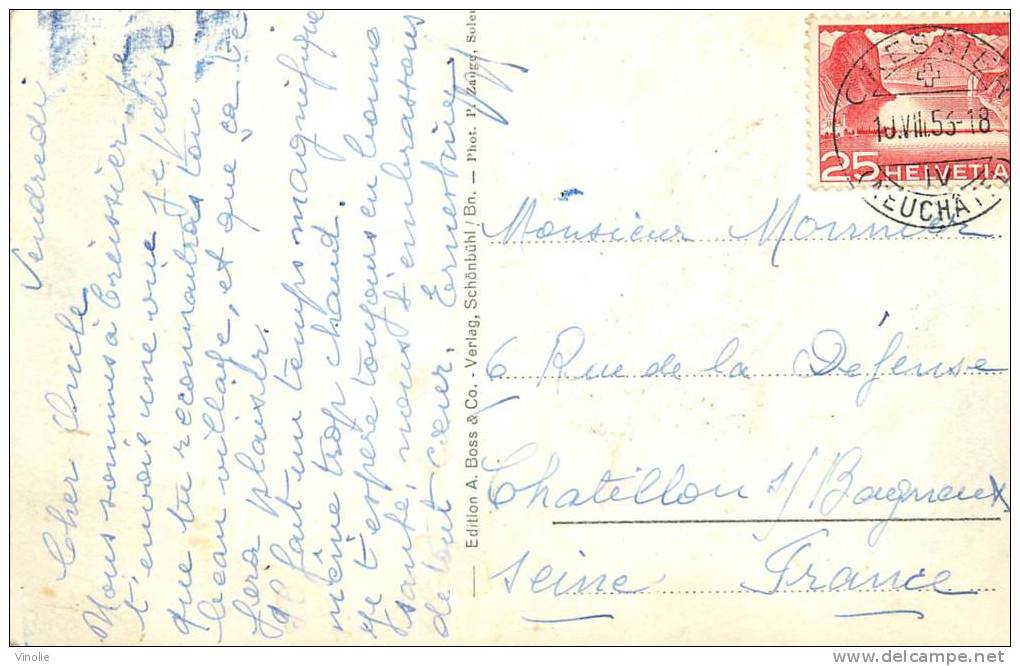 Vendredi
Cher Oncle
Nous sommes à Cressier,
t'envoie une vue je pense
que tu reconnaîtras ton
beau village, et que ça te
fera plaisir.
Il fait un temps magnifique
même trop chaud.
Je t'espère toujours en bonne
santé, nous t'embrassons
de tout cœur, Ernestine
Edition A. Boss & Co. - Verlag, Schönbühl / Bn. — Phot. P. Zaugg, Soleu
CRESSIER
10.VIII.53-18
IV
(NEUCHÂTEL)
25 HELVETIA
Monsieur Monnier
6 Rue de la Défense
Chatillon s/ Bagneux
Seine France
Vinolie
delcampe.net